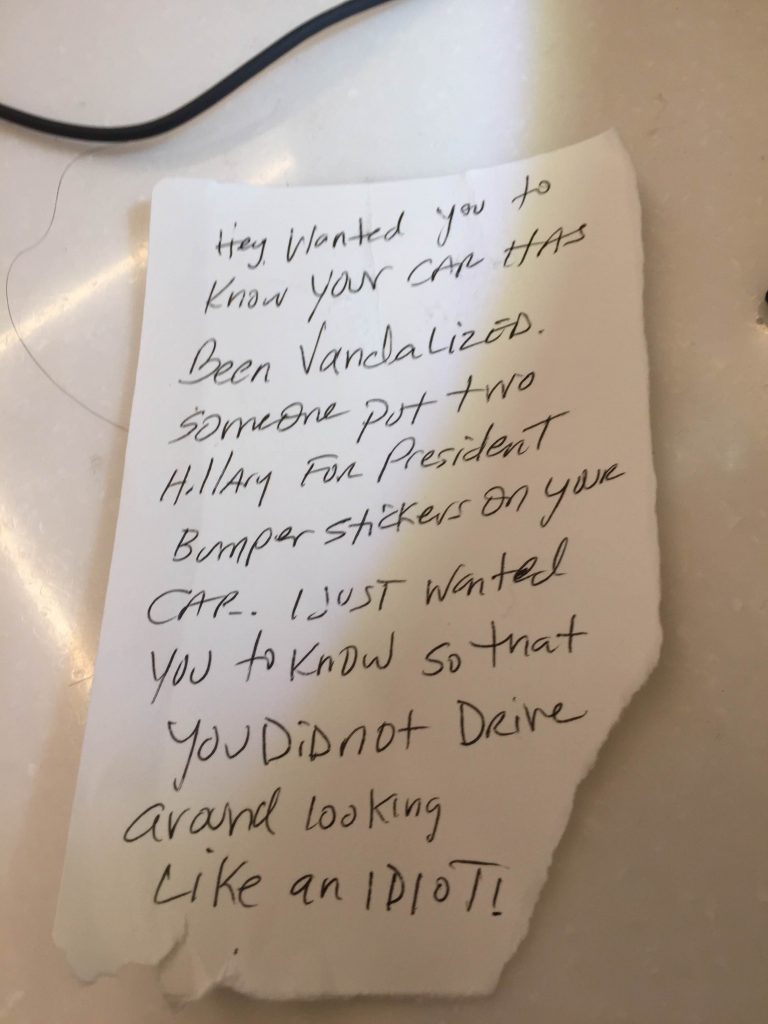 Hey, Wanted you to
Know YOUR CAR HAS
Been VandaLizED.
someone put two
HillAry FOR President
Bumper stickers on your
CAR. I JUST wanted
YOU to KnOW so that
YOU DiD not Drive
around looking
Like an IDIOT!